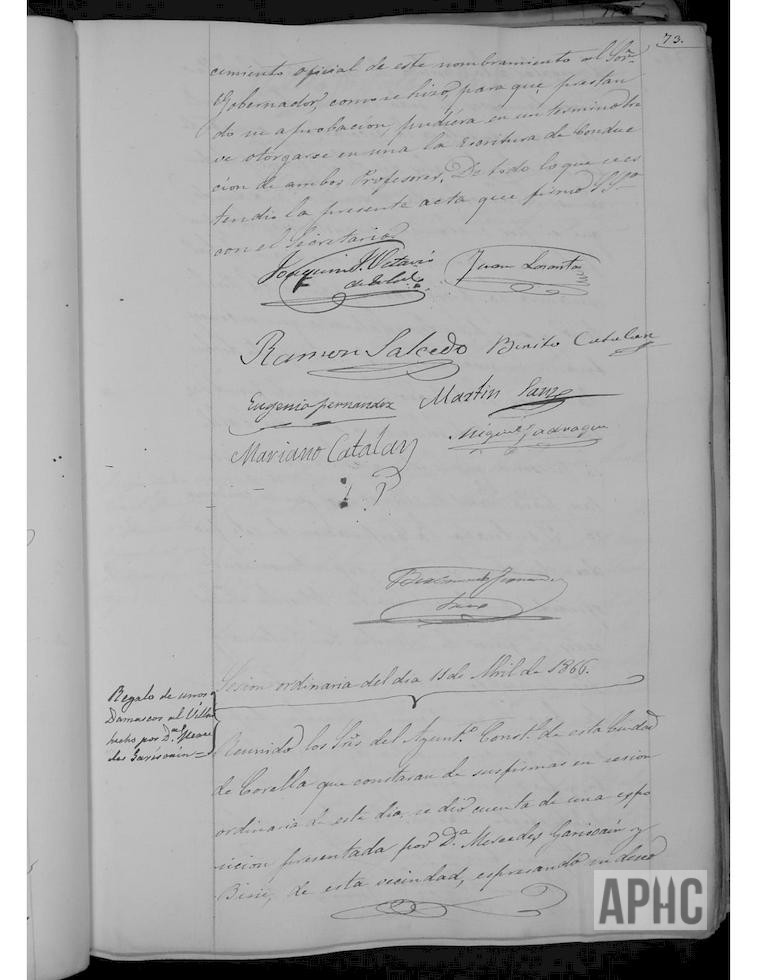 73.
cimiento oficial de este nombramiento al Sor.
Gobernador, como se hizo, para que, prestan
do su aprobacion, pudiera en un termino bre
ve otorgarse en una la Escritura de Conduc
cion de ambos Profesores. De todo lo que se es
tendio la presente acta que firmó SSa
con el Secretario
Joaquin
Juan
Ramon Salcedo Benito Catalan
Eugenio fernandez Martin Sanz
Mariano Catalan Miguel Jadraque
Sesion ordinaria del dia 11 de Abril de 1866.
Regalo de unos
Damascos al
hecho por Da.
des Garisoain
Reunido los Srs. del Ayunto. Constl. de esta Ciudad
de Corella que constaran de sus firmas en sesion
ordinaria de este dia, se dió cuenta de una espo
sicion presentada por Da. Mercedes Garisoain y
de esta vecindad, espresando su deseo
APHC